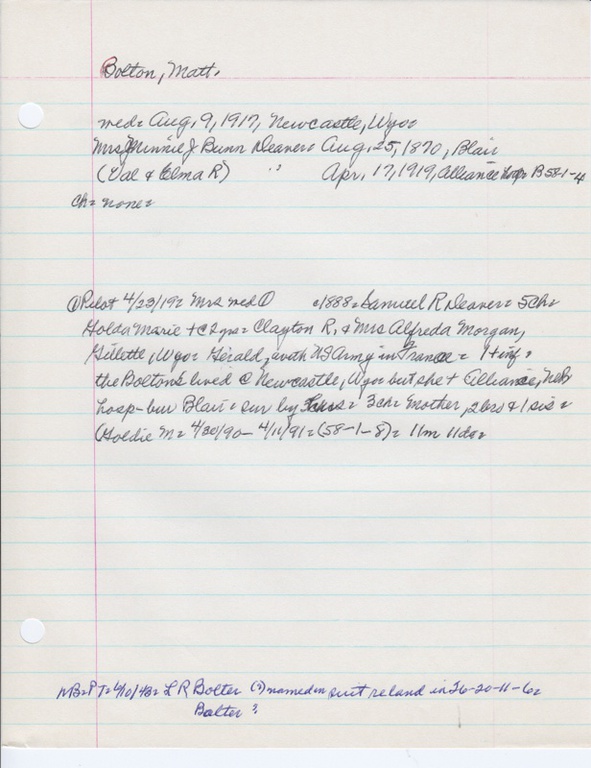 Bolton, Matt.
med= Aug, 9, 1917, Newcastle, Wyo=
Mrs Minnie J Bunn Deaver= Aug, 25, 1870, Blair
(Val & Elma R) " Apr, 17, 1919, Alliance hosp B58-1-4
ch= none=
① Pilot 4/23/19= Mrs med ① c1888= Samuel R Deaver= 5ch=
Golda Marie + c2yrs= Clayton R, & Mrs Alfreda Morgan,
Gillette, Wyo= Gerald, with US Army in France= 1+inf=
the Boltons lived @ Newcastle, Wyo= but she + Alliance, Neb
hosp-bur Blair= sur by hus= 3ch= Mother, 2brs & 1 sis=
(Goldie M= 4/30/90- 4/11/91=(58-1-8)= 11m 11da=
NB=PT=6/10/43= L R Bolter (?) named in suit re land in 26-20-11-6=
Balter ?